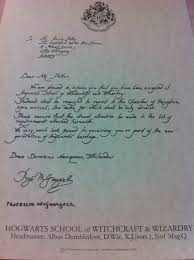 To Mr. Harry Potter,
The Cupboard under the Stairs,
Surrey
Dear Mr. Potter,
We are pleased to inform you that you have been accepted at
Hogwarts School of Witchcraft and Wizardry.
Students shall be required to report to the Chamber of Reception
upon arrival, the dates for which shall be duly advised.
Please ensure that the utmost attention be made to the list of
requirements attached herewith.
We very much look forward to receiving you as part of the new
generation of Hogwarts' heritage.
Draco Dormiens Nunquam Titillandus
Professor McGonagall
HOGWARTS SCHOOL of WITCHCRAFT & WIZARDRY
Headmaster: Albus Dumbledore, D.Wiz., X.J.(sorc.), S.of Mag.Q